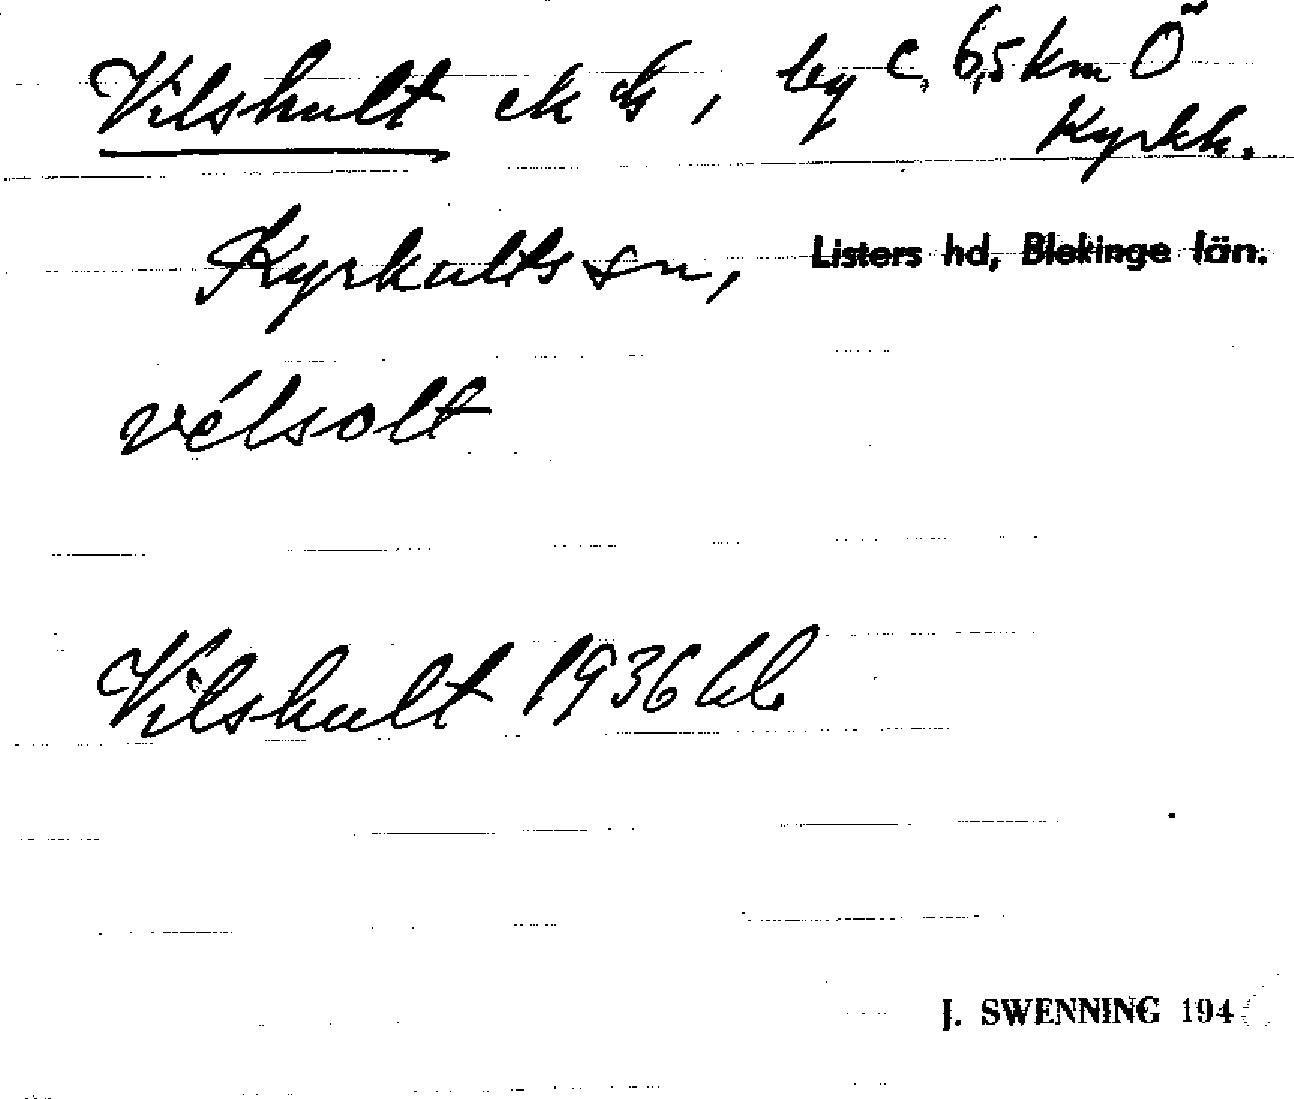 Vilshult ek ds, by c. 6,5 km Ö
Kyrkh.
Kyrkults sn, Listers hd, Blekinge län.
vélsolt
Vilshult 1936 bl.
J. SWENNING 194